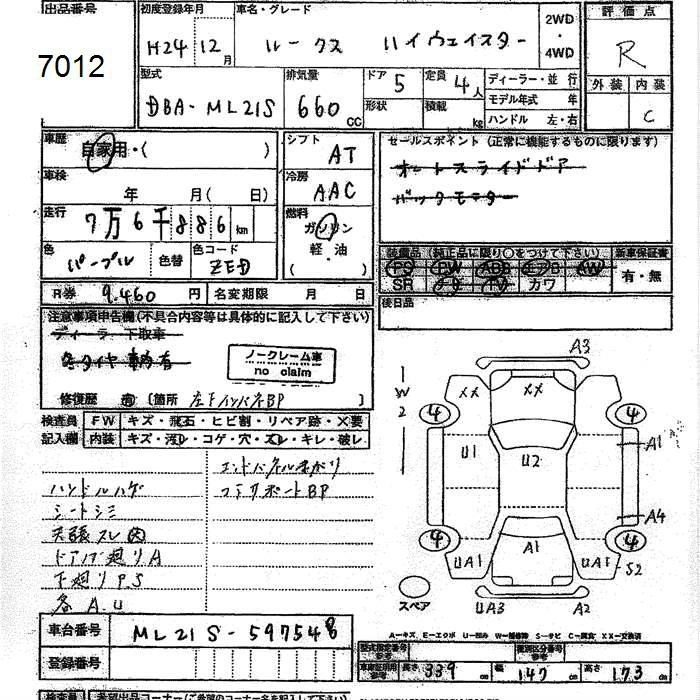 出品番号
7012
初度登録年月
H24 12月
車名・グレード
ルークス ハイウェイスター
2WD
・
4WD
評価点
R
外装 内装
C
型式
DBA-ML21S
排気量
660 CC
ドア 5
定員 4人
形状
積載 kg
ディーラー・並行
モデル年式 年
ハンドル 左・右
車歴
自家用・( )
車検
年 月( 日)
走行
7万6千886km
色
パープル
色替
色コード
ZED
シフト
AT
冷房
AAC
燃料
ガソリン
軽・油
( )
セールスポイント(正常に機能するものに限ります)
オートスライドドア
バックモニター
装備品(純正品に限り○をつけて下さい)
PS PW ABS エアB AW
SR ナビ TV カワ
新車保証書
有・無
後日品
R券 9,460円
名変期限 月 日
注意事項申告欄(不具合内容等は具体的に記入して下さい)
ディーラー下取車
冬タイヤ 有
ノークレーム車
no claim
修復歴 [箇所 左Fインパネ BP ]
検査員 FW キズ・飛石・ヒビ割・リペア跡・X要
記入欄 内装 キズ・汚レ・コゲ・穴・スレ・キレ・破レ
エンドパネルまがり
ハンドルハゲ
コアサポートBP
シートシミ
天張スレ
ドア内廻りA
下廻りPS
各A.U
A3
XX XX
W2
4 4
U1 U2 A1
A4
4 4
UA1 A1 UA1 S2
スペア
UA3 A2
A―キズ、E―エクボ U―凹み W―補修跡 S―サビ C―腐食 XX―交換済
車台番号 ML21S-597548
登録番号
型式指定番号
参考
類別区分番号
参考
車庫証明用
参考
長さ 339cm 幅 147cm 高さ 173cm
検査員 業販出品コーナー(ご希望のコーナー名を記入して下さい)